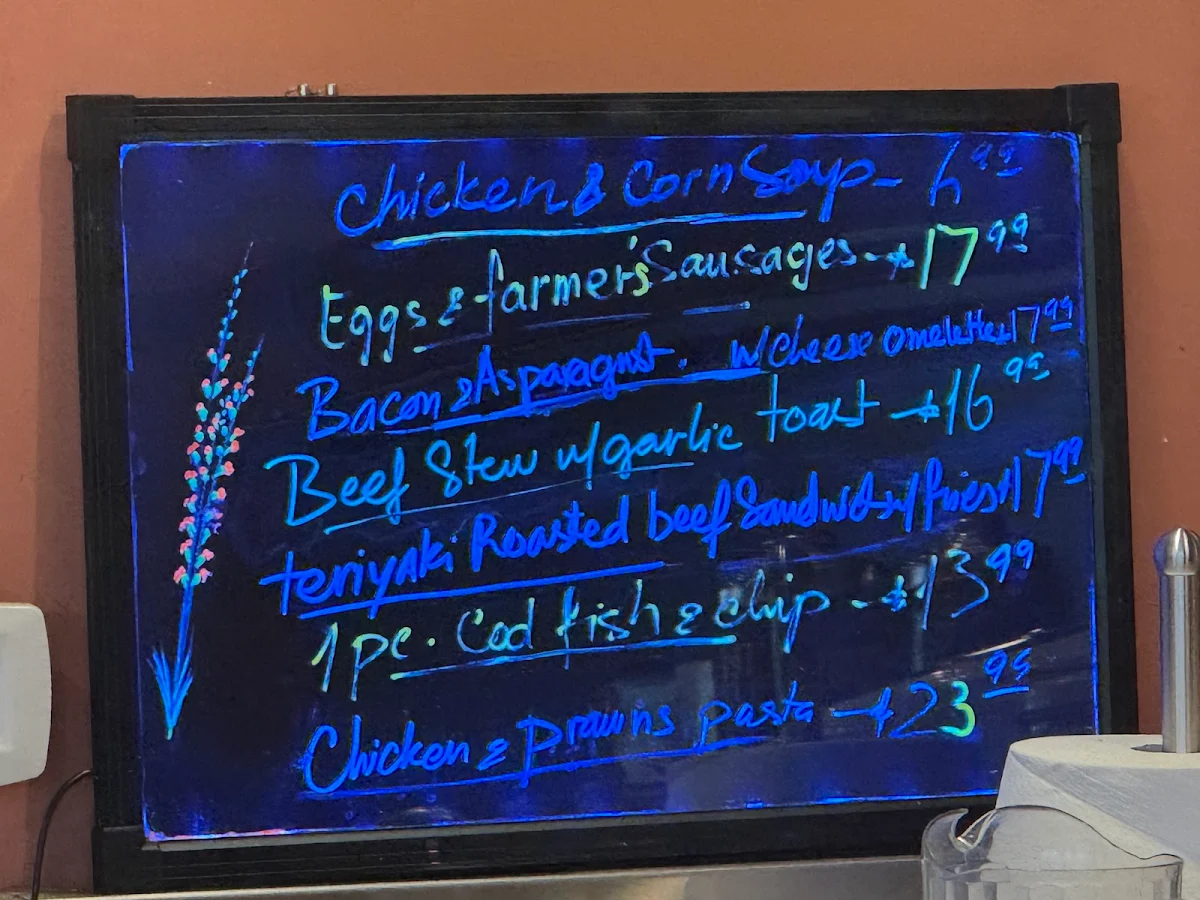 Chicken & Corn Soup - 6 99
Eggs & farmer's Sausages - $17 99
Bacon & Asparagust. w/ cheese omelette $17 99
Beef Stew w/ garlic toast - $16 99
teriyaki Roasted beef Sandwich w/ fries $17 99
1 pc. Cod fish & chip - $13 99
Chicken & prawns pasta - $23 99